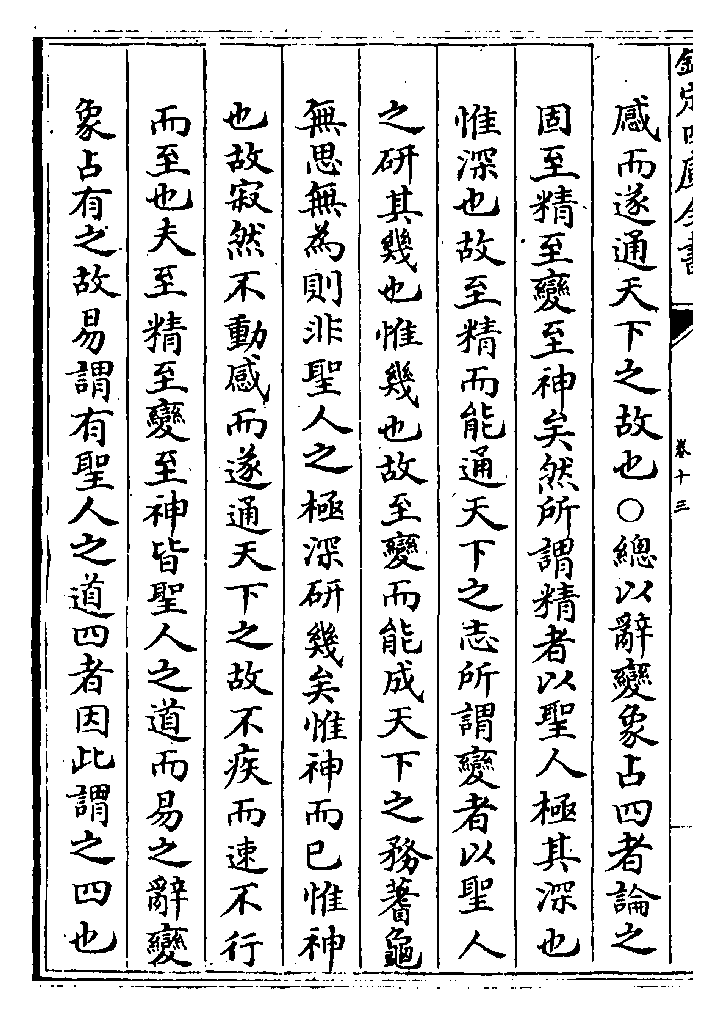 欽定四庫全書
卷十三
感而遂通天下之故也○總以辭變象占四者論之
固至精至變至神矣然所謂精者以聖人極其深也
惟深也故至精而能通天下之志所謂變者以聖人
之研其幾也惟幾也故至變而能成天下之務蓍龜
無思無為則非聖人之極深研幾矣惟神而已惟神
也故寂然不動感而遂通天下之故不疾而速不行
而至也夫至精至變至神皆聖人之道而易之辭變
象占有之故易謂有聖人之道四者因此謂之四也